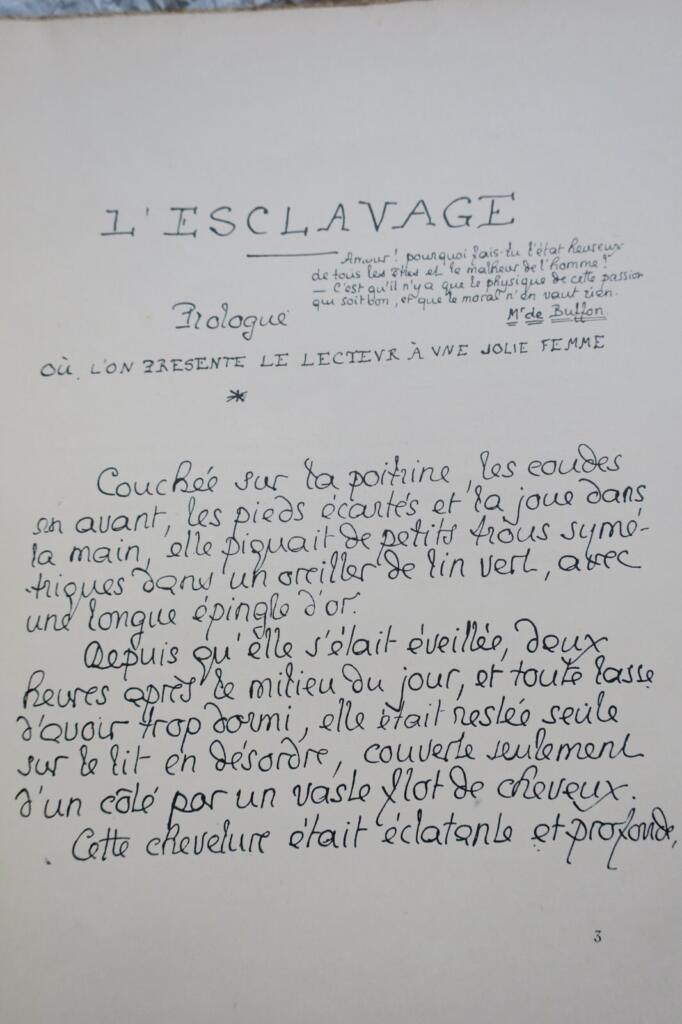 L'ESCLAVAGE
Amour! pourquoi fais-tu l'état heureux
de tous les êtres et le malheur de l'homme?
— C'est qu'il n'y a que le physique de cette passion
qui soit bon, et que le moral n'en vaut rien.
Mr de Buffon.
Prologue
OÙ L'ON PRESENTE LE LECTEVR À VNE JOLIE FEMME
*
Couchée sur la poitrine, les coudes
en avant, les pieds écartés et la joue dans
la main, elle piquait de petits trous symé-
triques dans un oreiller de lin vert, avec
une longue épingle d'or.
Depuis qu'elle s'était éveillée, deux
heures après le milieu du jour, et toute lasse
d'avoir trop dormi, elle était restée seule
sur le lit en désordre, couverte seulement
d'un côté par un vaste flot de cheveux.
Cette chevelure était éclatante et profonde,
3